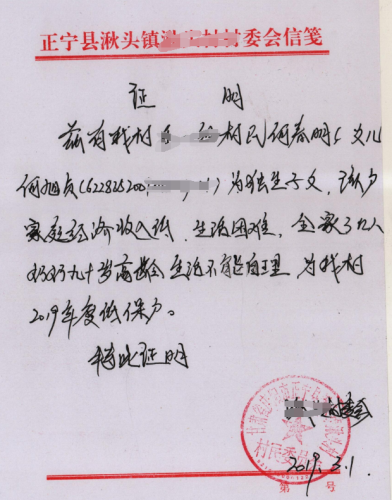 正宁县湫头镇 村委会信笺
证 明
兹有我村 村民何春明之女儿
何旭贞(622825200 )为独生子女,该户
家庭经济收入低,生活困难,全家 人
奶奶九十岁高龄 生活不能自理,为我村
2019年度低保户。
特此证明
村委会
村民委员会
2019.3.1.
第 号